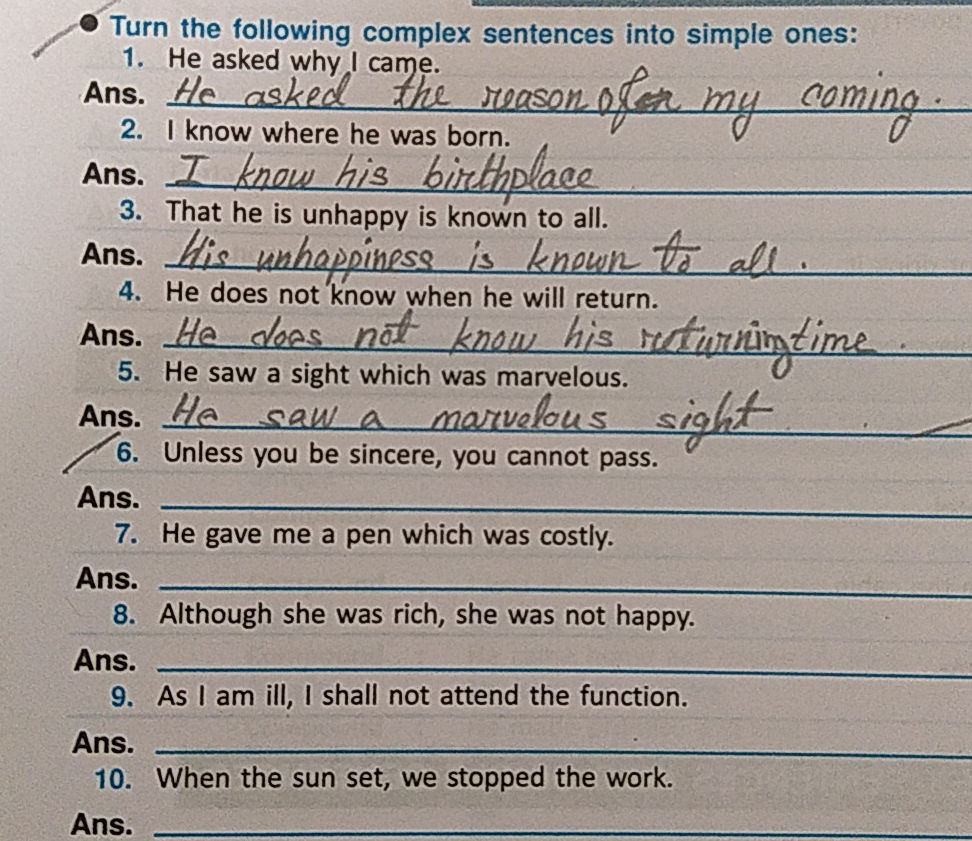 Turn the following complex sentences into simple ones:
1. He asked why I came.
Ans. He asked the reason of my coming.
2. I know where he was born.
Ans. I know his birthplace
3. That he is unhappy is known to all.
Ans. His unhappiness is known to all.
4. He does not know when he will return.
Ans. He does not know his returning time.
5. He saw a sight which was marvelous.
Ans. He saw a marvelous sight
6. Unless you be sincere, you cannot pass.
Ans.
7. He gave me a pen which was costly.
Ans.
8. Although she was rich, she was not happy.
Ans.
9. As I am ill, I shall not attend the function.
Ans.
10. When the sun set, we stopped the work.
Ans.